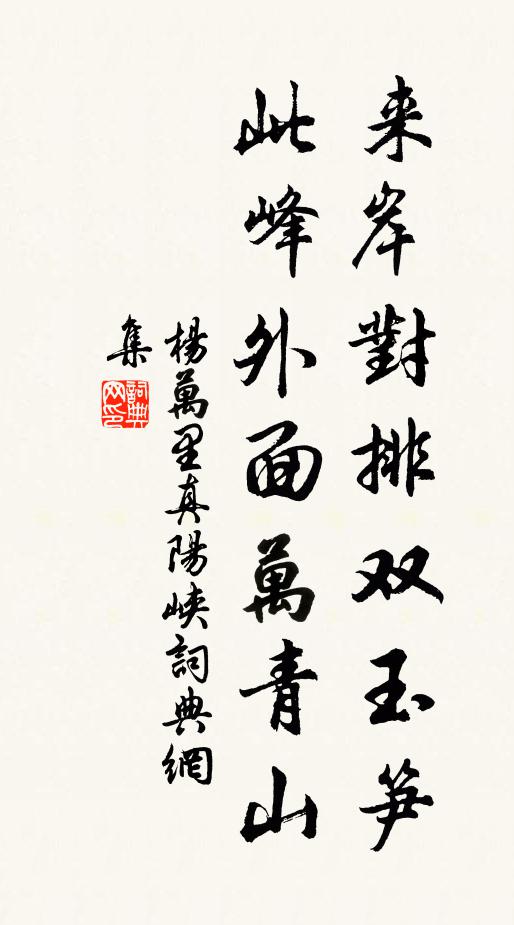 来岸對排双玉笋
此峰外面萬青山
楊萬里真陽峽詞典網
集
詞典
网印